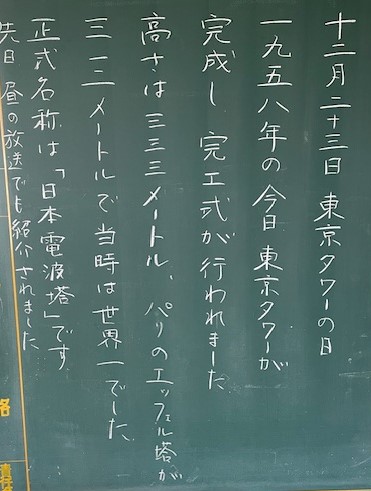 十二月二十三日 東京タワーの日
一九五八年の今日 東京タワーが
完成し 完工式が行われました
高さは三三三メートル、パリのエッフェル塔が
三一二メートルで当時は世界一でした
正式名称は「日本電波塔」です
先日 昼の放送でも紹介されました